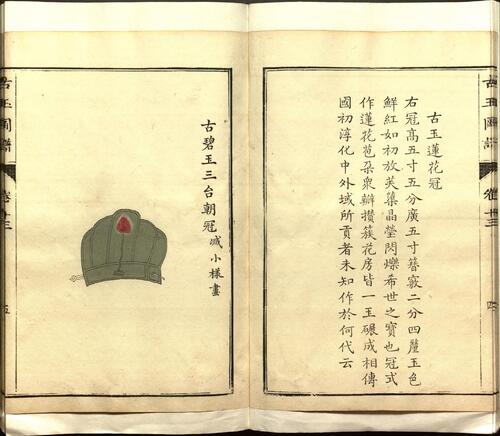 古玉圖譜 卷十三
古玉蓮花冠
右冠高五寸五分廣五寸簪竅二分四釐玉色
鮮紅如初放芙蕖晶瑩閃爍希世之寶也冠式
作蓮花苞朵衆瓣攢簇花房皆一玉碾成相傳
國初淳化中外域所貢者未知作於何代云
古碧玉三台朝冠 減小樣畫
古玉圖譜 卷十三 五